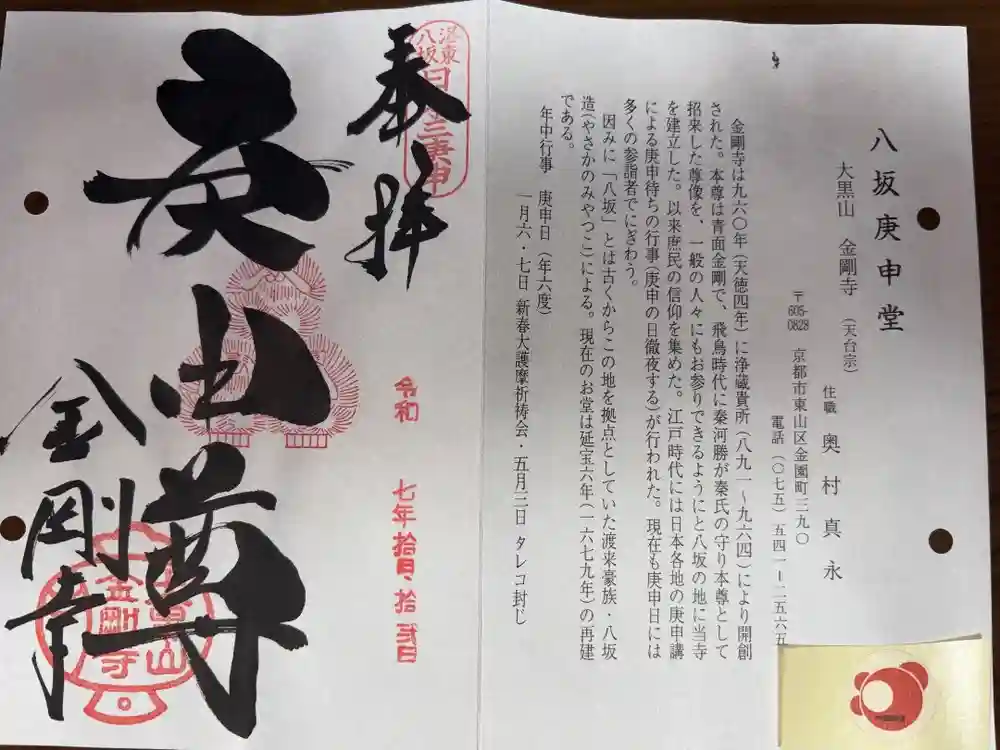 八坂庚申堂
大黒山 金剛寺 (天台宗)
住職 奥村真永
〒605-0828 京都市東山区金園町三九〇
電話(〇七五)五四一ー二五六五
金剛寺は九六〇年(天徳四年)に浄蔵貴所(八九一〜九六四)により開創
された。本尊は青面金剛で、飛鳥時代に秦河勝が秦氏の守り本尊として
招来した尊像を、一般の人々にもお参りできるようにと八坂の地に当寺
を建立した。以来庶民の信仰を集めた。江戸時代には日本各地の庚申講
による庚申待ちの行事(庚申の日徹夜する)が行われた。現在も庚申日には
多くの参詣者でにぎわう。
因みに「八坂」とは古くからこの地を拠点としていた渡来豪族・八坂
造(やさかのみやつこ)による。現在のお堂は延宝六年(一六七九年)の再建
である。
年中行事 庚申日(年六度)
一月六・七日 新春大護摩祈祷会・五月三日 タレコ封じ
奉拝
庚申尊
八坂
金剛寺
令和 七年拾月拾弐日
洛東
八坂
日本三庚申
大黒山
金剛寺